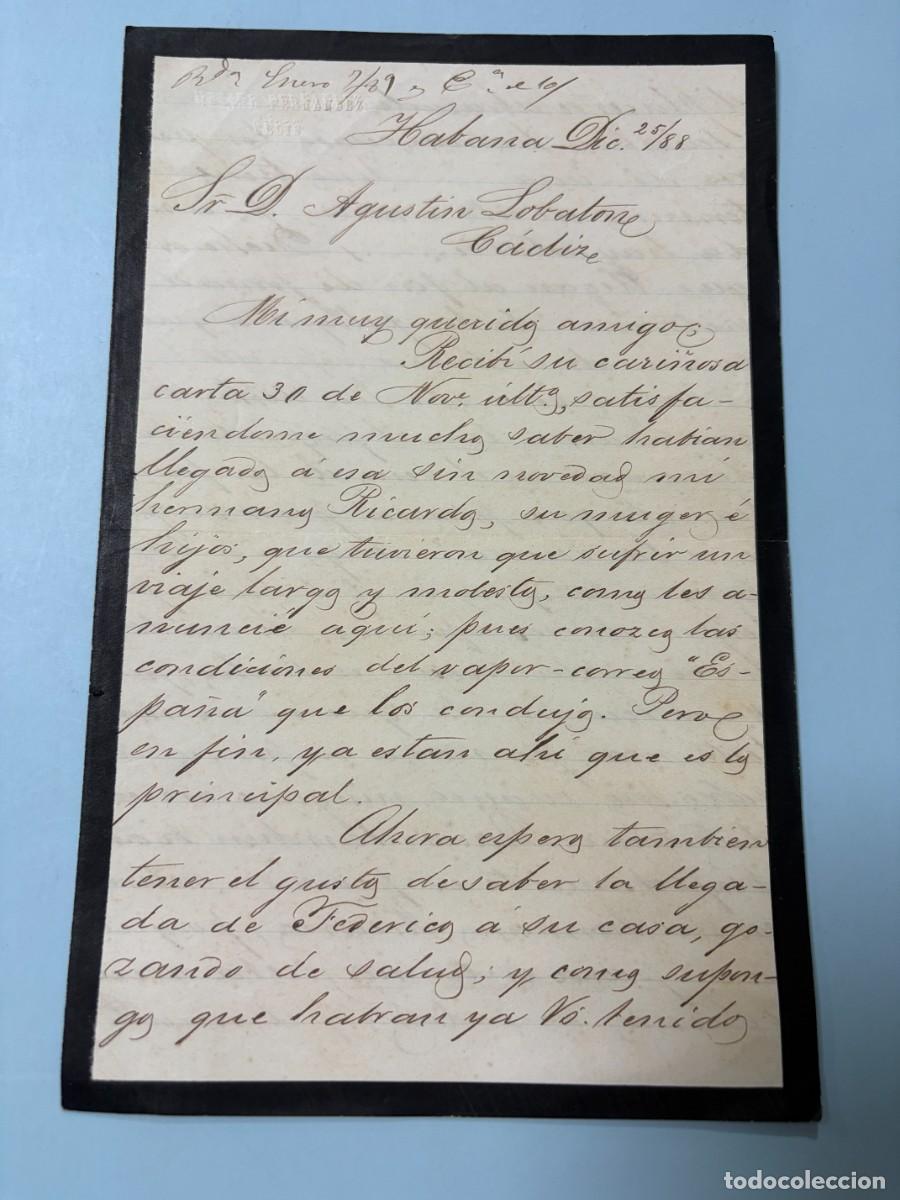 Rda Enero 7/89 y Cª el 10/
FERNANDEZ
Habana Dic. 25/88
Sr D. Agustin Lobaton
Cádiz
Mi muy querido amigo;
Recibí su cariñosa
carta 30 de Nove. últº, satisfa-
ciendome mucho saber habian
llegado á esa sin novedad mi
hermano Ricardo, su muger é
hijos, que tuvieron que sufrir un
viaje largo y molesto, como les a-
nuncié aquí; pues conozco las
condiciones del vapor-correo "Es-
paña" que los condujo. Pero
en fin, ya estan ahi que es lo
principal.
Ahora espero tambien
tener el gusto de saber la llega-
da de Federico á su casa, go-
zando de salud; y como supon-
go que habran ya Vs. tenido
todocoleccion